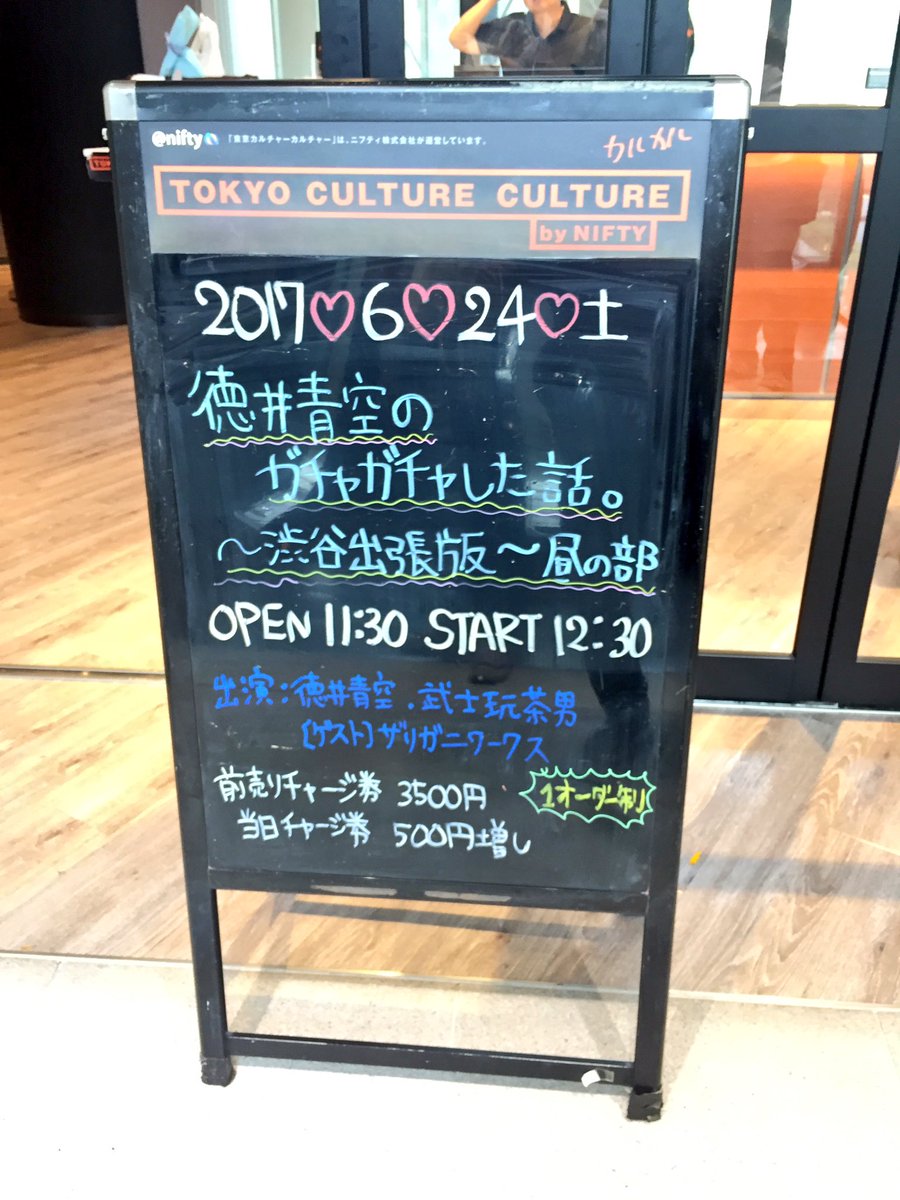 @nifty 「東京カルチャーカルチャー」は、ニフティ株式会社が運営しています。
カルカル
TOKYO CULTURE CULTURE
by NIFTY
2017♡6♡24♡土
徳井青空の
ガチャガチャした話。
～渋谷出張版～昼の部
OPEN 11:30 START 12:30
出演:徳井青空.武士玩茶男
〔ゲスト〕ザリガニワークス
前売りチャージ券 3500円 1オーダー制
当日チャージ券 500円増し